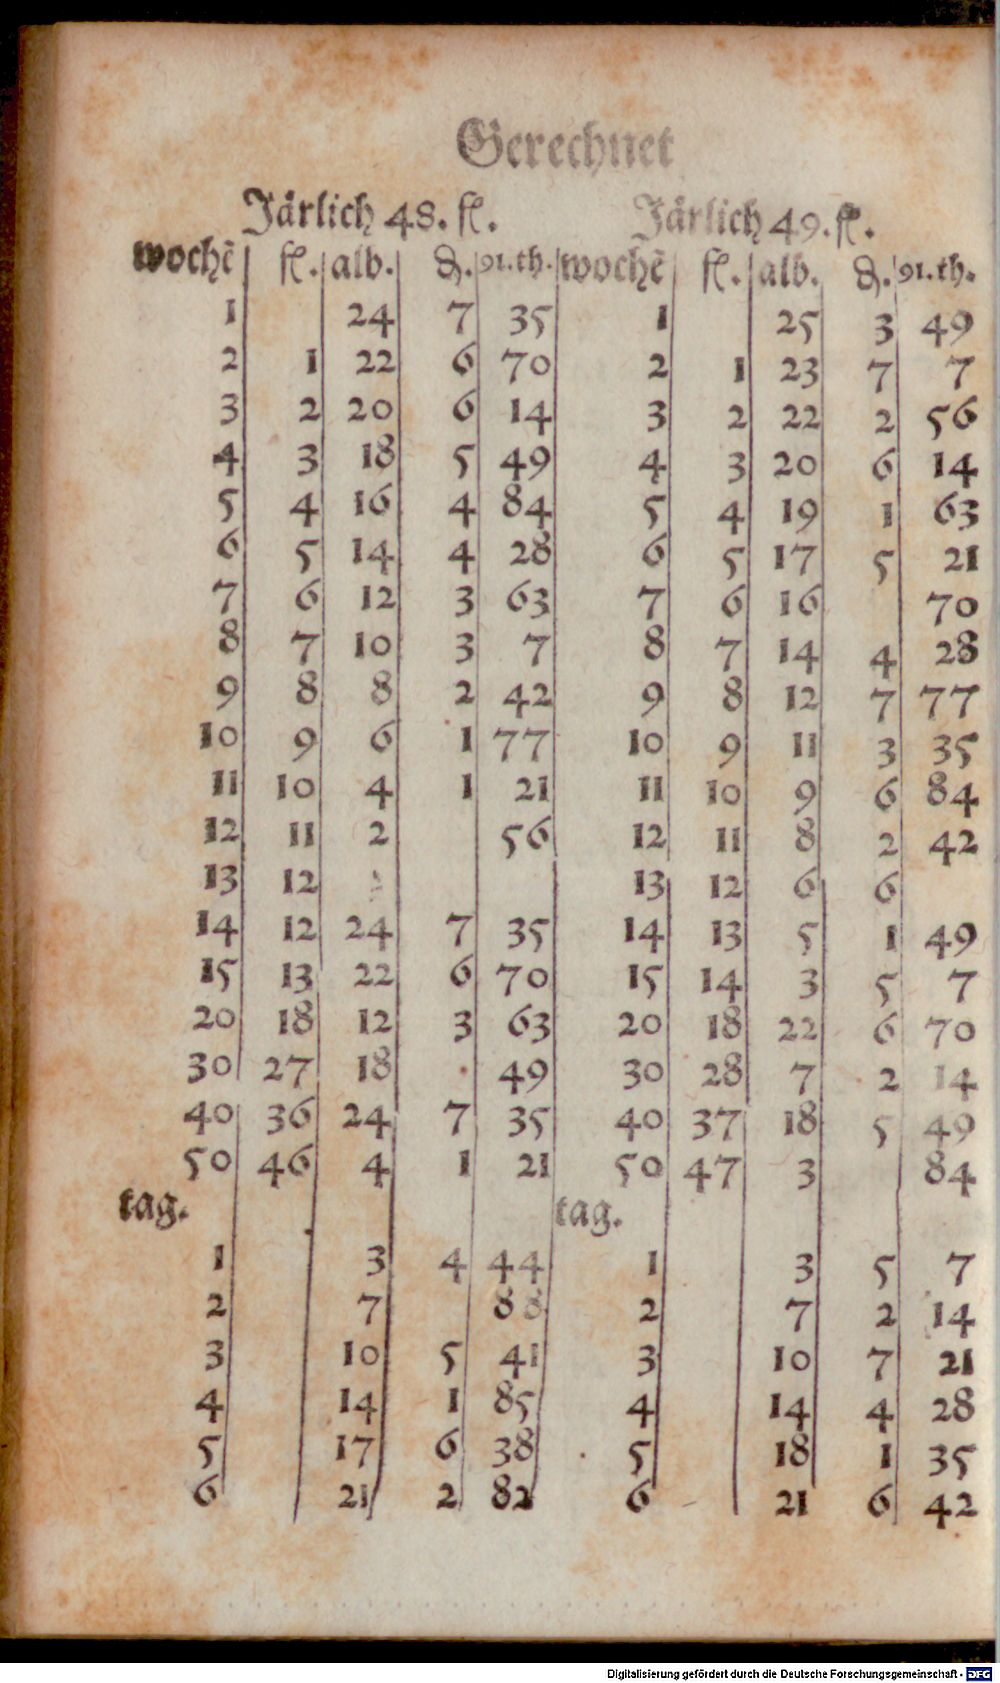 Gerechnet
Järlich 48. fl. Järlich 49. fl.
wochẽ fl. alb. ₰. 91.th. wochẽ fl. alb. ₰. 91.th.
1 24 7 35 1 25 3 49
2 1 22 6 70 2 1 23 7 7
3 2 20 6 14 3 2 22 2 56
4 3 18 5 49 4 3 20 6 14
5 4 16 4 84 5 4 19 1 63
6 5 14 4 28 6 5 17 5 21
7 6 12 3 63 7 6 16 70
8 7 10 3 7 8 7 14 4 28
9 8 8 2 42 9 8 12 7 77
10 9 6 1 77 10 9 11 3 35
11 10 4 1 21 11 10 9 6 84
12 11 2 56 12 11 8 2 42
13 12 13 12 6 6
14 12 24 7 35 14 13 5 1 49
15 13 22 6 70 15 14 3 5 7
20 18 12 3 63 20 18 22 6 70
30 27 18 49 30 28 7 2 14
40 36 24 7 35 40 37 18 5 49
50 46 4 1 21 50 47 3 84
tag. tag.
1 3 4 44 1 3 5 7
2 7 88 2 7 2 14
3 10 5 41 3 10 7 21
4 14 1 85 4 14 4 28
5 17 6 38 5 18 1 35
6 21 2 82 6 21 6 42
Digitalisierung gefördert durch die Deutsche Forschungsgemeinschaft - DFG